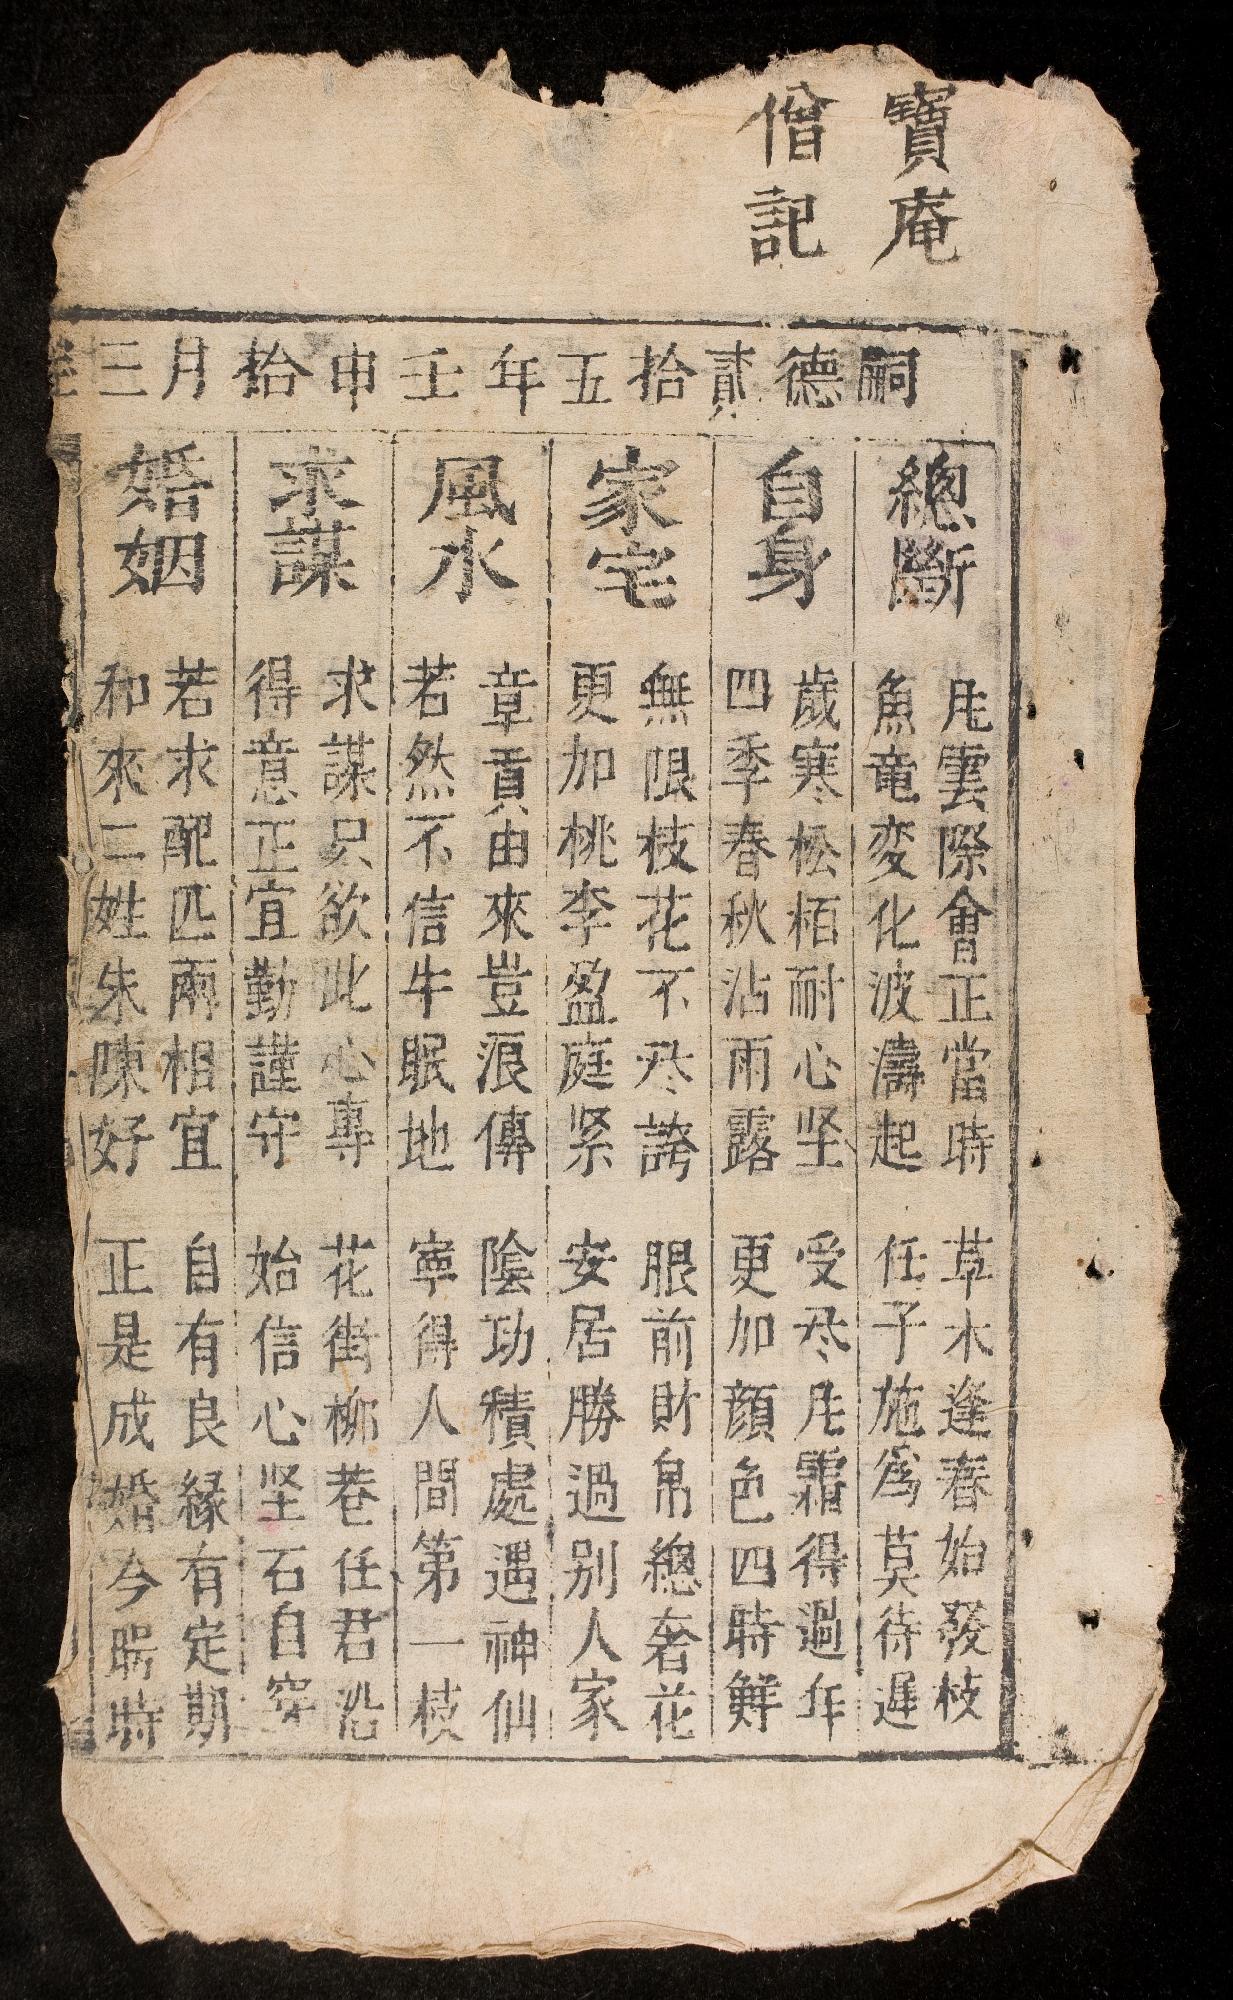 寶庵
僧記
嗣德貳拾五年壬申拾月三
總斷
凮雲際會正當時　草木逢春始發枝
魚竜变化波濤起　任子施為莫待遅
自身
歲寒松栢耐心坚　受尽凮霜得過年
四季春秋沾雨露　更加顔色四時鮮
家宅
無限枝花不尽誇　眼前財帛總奢花
更加桃李盈庭紧　安居勝過别人家
風水
章貢由來豈浪傳　陰功積處遇神仙
若然不信牛眠地　寧得人間第一枝
求謀
求謀只欲此心專　花街柳巷任君沿
得意正宜勤謹守　始信心坚石自穿
婚姻
若求配匹兩相宜　自有良緣有定期
和來二姓朱陳好　正是成婚今時